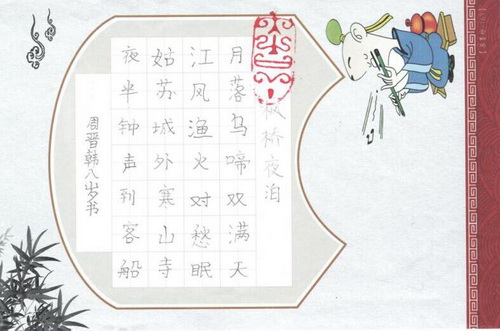 桥夜泊
月落乌啼双满天
江风渔火对愁眠
姑苏城外寒山寺
夜半钟声到客船
周晋韩八岁书